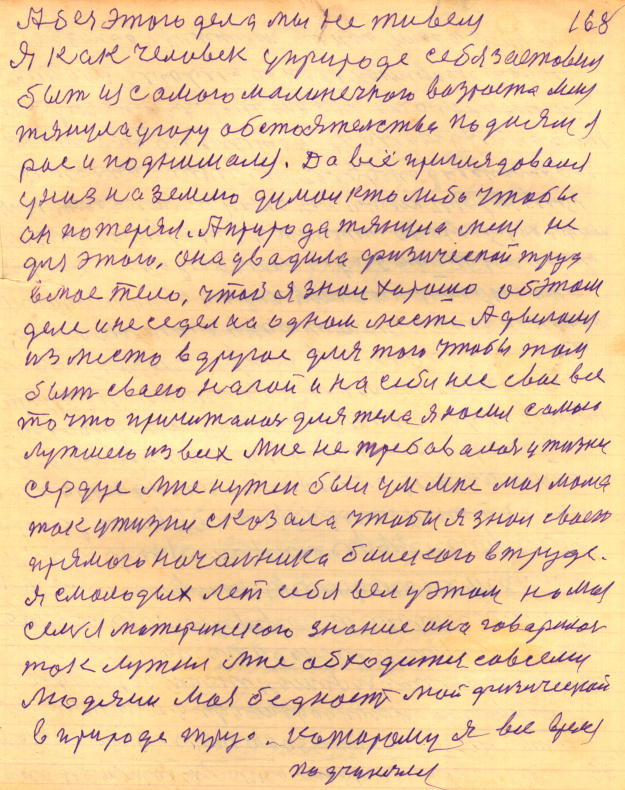 А без этого дела мы не живем 168
Я как человек у природе себя заставил
быть из самого малинечкого возроста меня
тянула у гору обстоятелства подиям я
рос и поднимался. Да всё приглядовался
униз на землю думои кто либо чтобы
он потерял. А природа тянула меня не
для этого, она двадила физическои труд
в мое тело, чтоб я знал хорошо об этом
деле и не седел на одном месте А двигался
из место в другое для того чтобы там
быть своею нагой и на себи нес свое все
то что причиталос для тела я носил самого
лутшего из всех мне не требовалос у жизни
сердце мне нужен был ум мне моя мама
так у жизни сказала чтобы я знал своего
прямого началника в труде.
Я с молодых лет себя вел у этом но моя
семя материнского знание она говарилос
так нужна мне обходится со всеми
людями моя бедност мой физическои
в природе труд. которому я все время
подчинялся